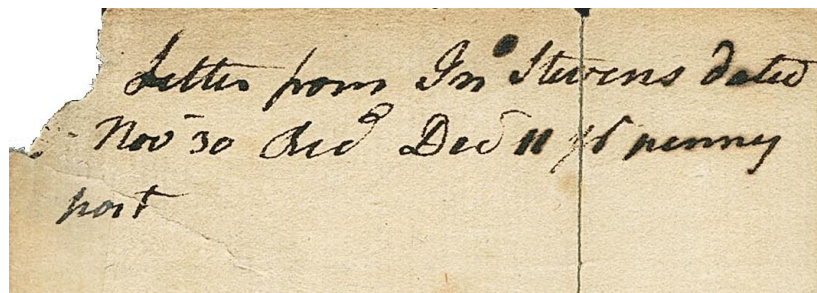 Letter from Jno Stevens dated
Novr 30 Recd Decr 11 pr penny
post